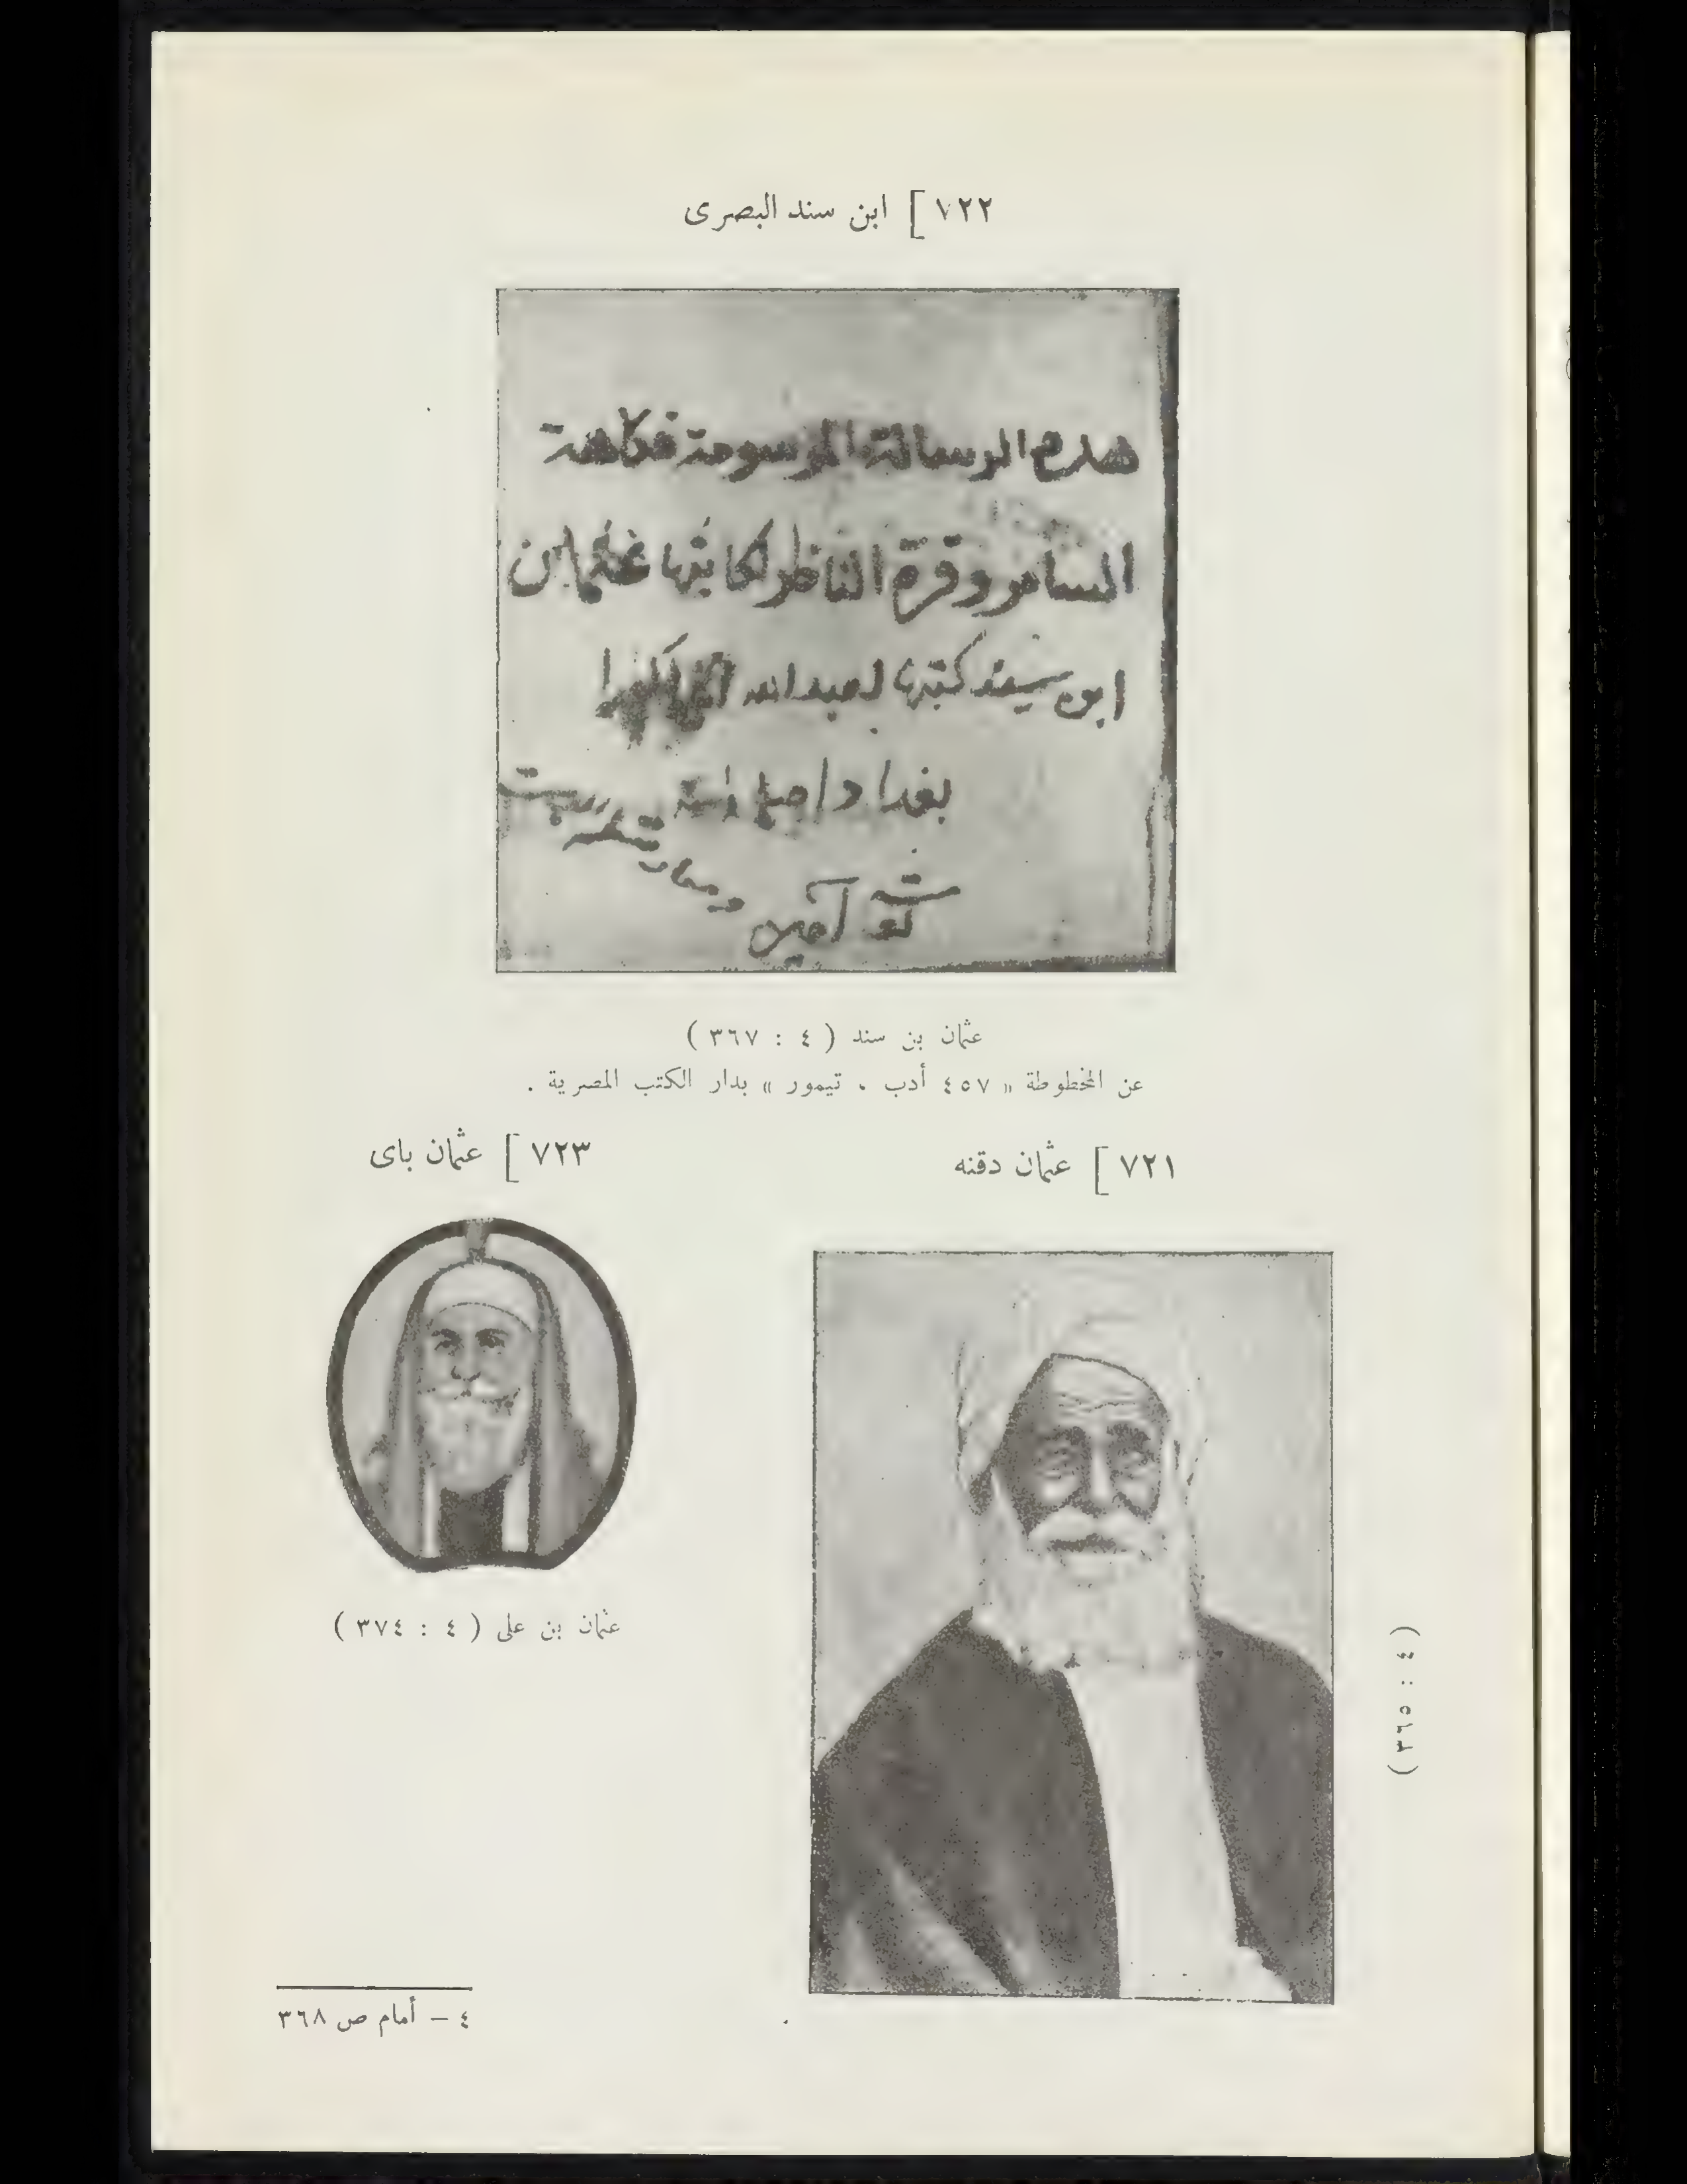 ٧٢٢ [ ابن سند البصرى
هذه الرسالة الموسومة فكاهة
السامر وقرة الناظر لكاتبها عثمان
ابن سند كتبها لعبدالله
بغداد
آمين
عثمان بن سند ( ٤ : ٣٦٧ )
عن المخطوطة « ٤٥٧ أدب . تيمور » بدار الكتب المصرية .
٧٢١ [ عثمان دقنه
( ٤ : ٣٦٥ )
٧٢٣ [ عثمان باى
عثمان بن على ( ٤ : ٣٧٤ )
٤ — أمام ص ٣٦٨